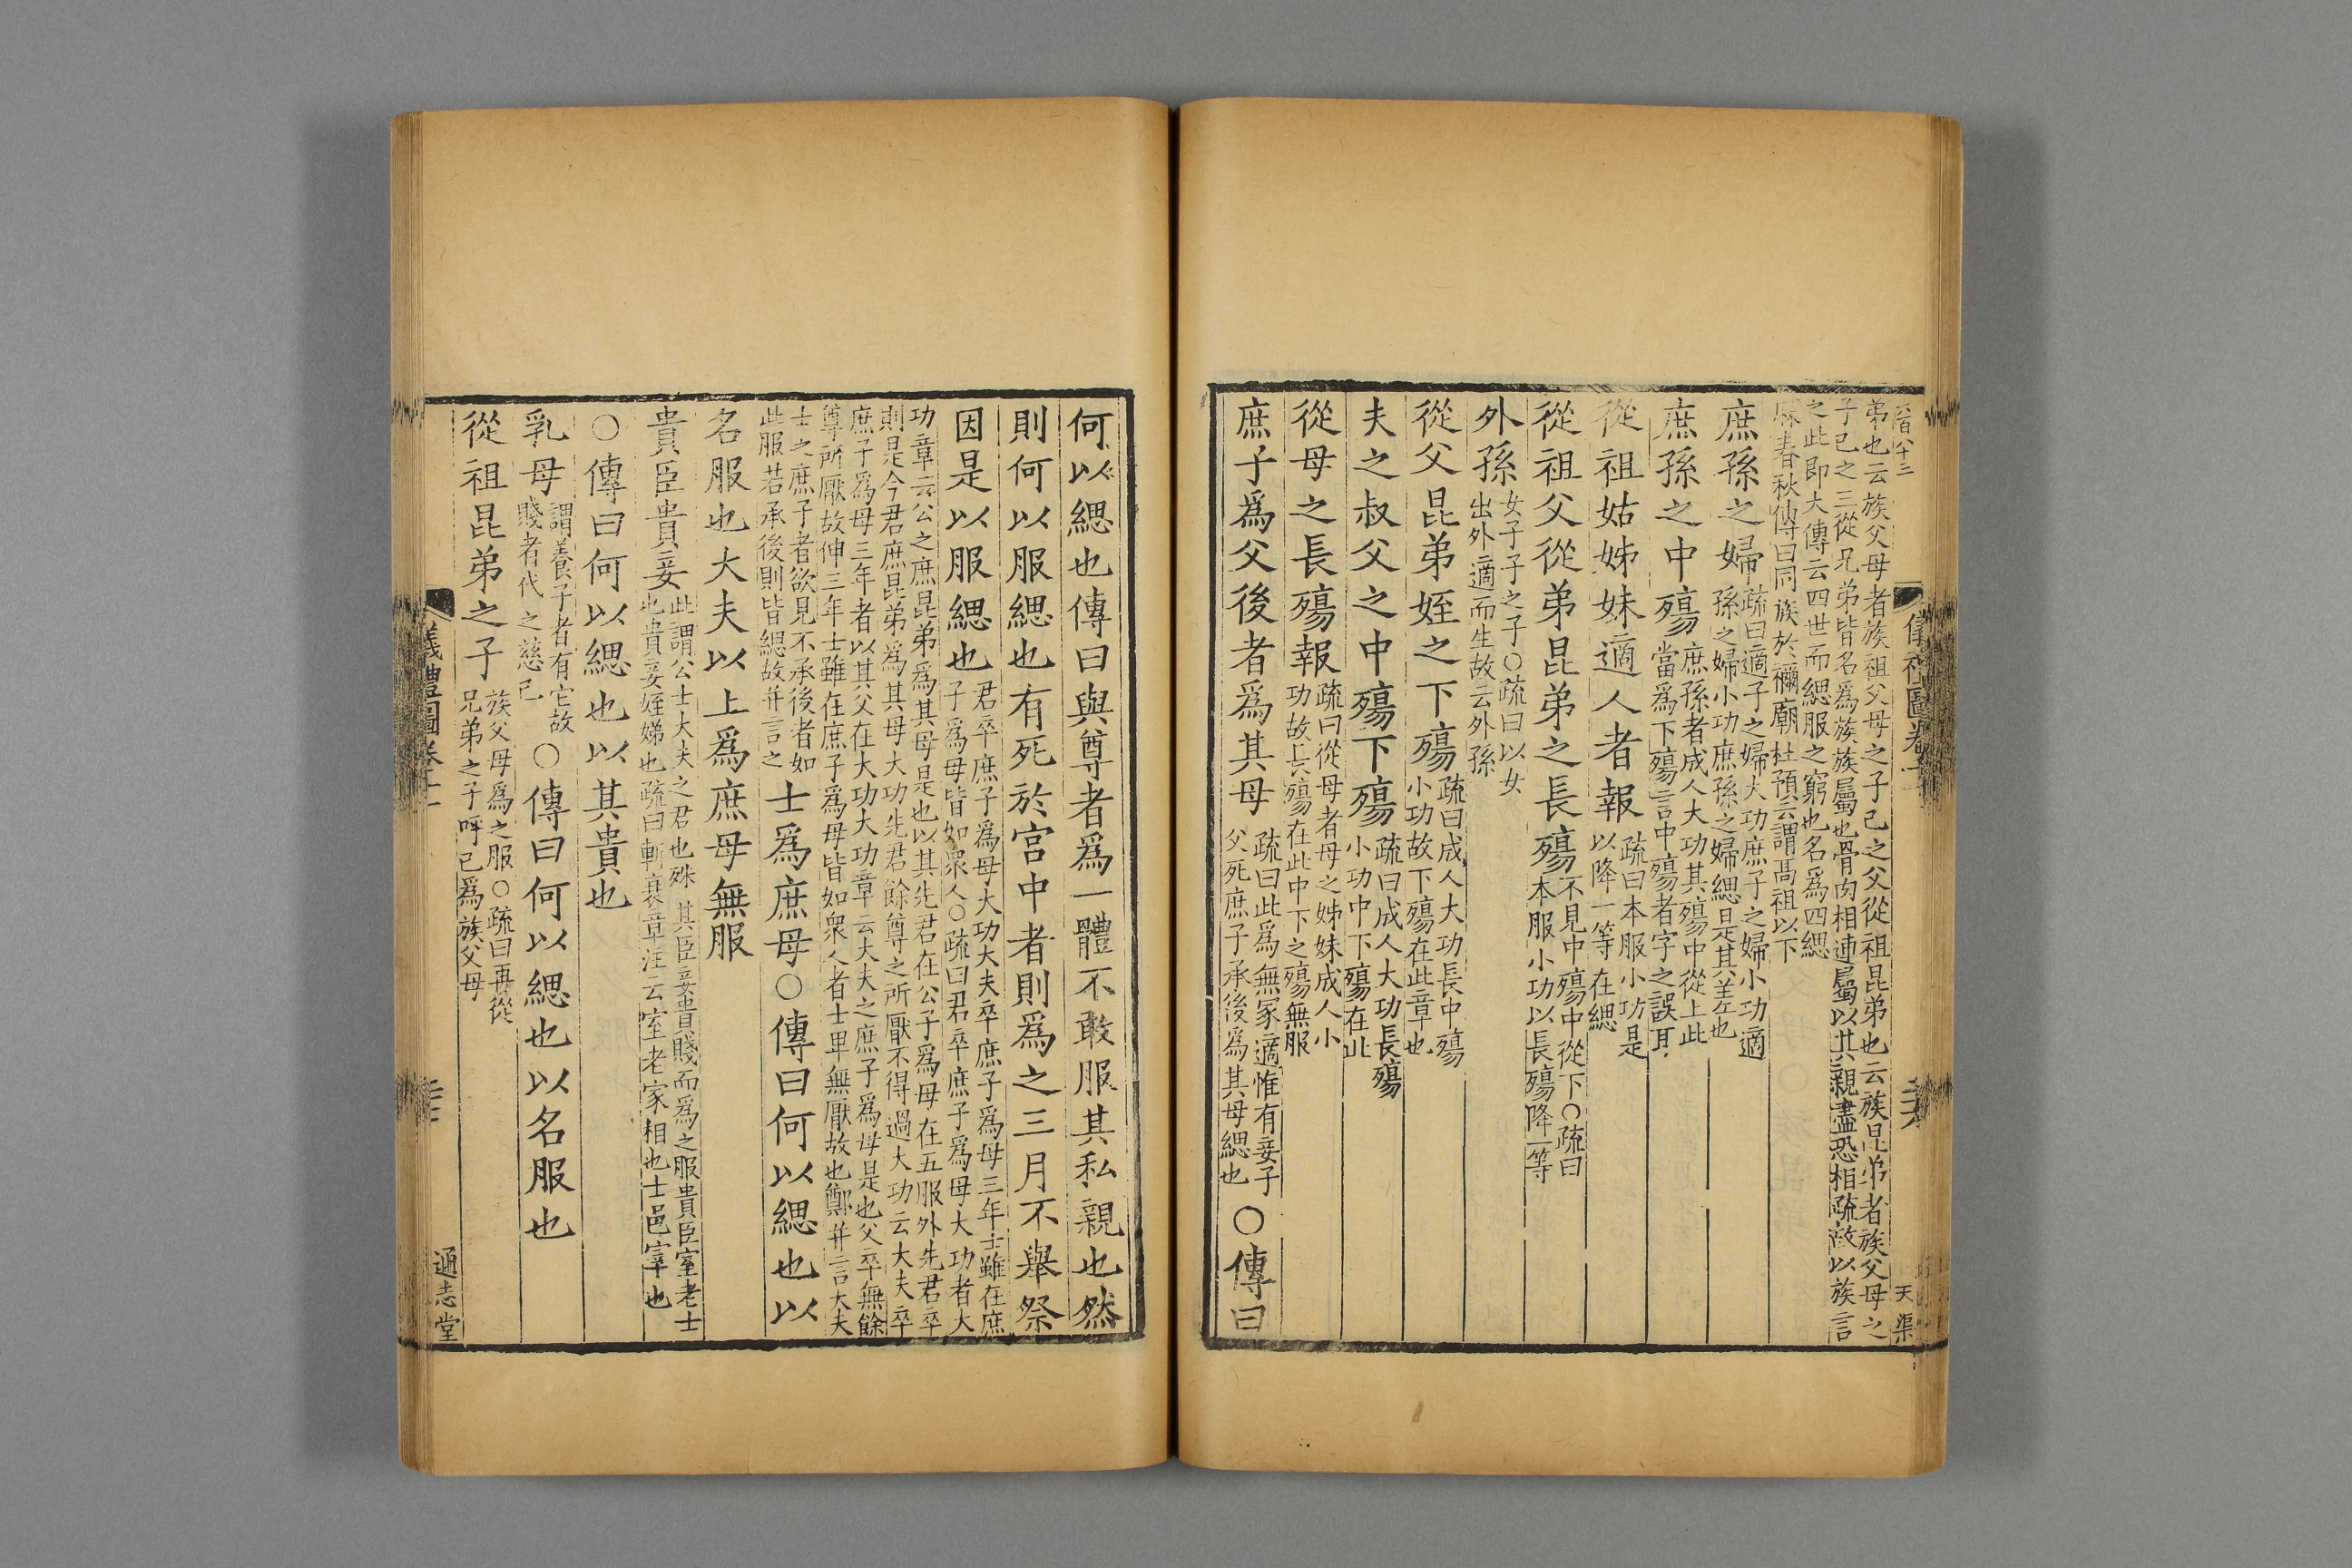 弟也云族父母者族祖父母之子己之父從祖昆弟也云族昆弟者族父母之
子己之三從兄弟皆名爲族族屬也骨肉相連屬以其親盡恐相疏故以族言
之此即大傳云四世而緦服之窮也名爲四緦
麻春秋傳曰同族於禰廟杜預云謂高祖以下
庶孫之婦
疏曰適子之婦大功庶子之婦小功適
孫之婦小功庶孫之婦緦是其差也
庶孫之中殤
庶孫者成人大功其殤中從上此
當爲下殤言中殤者字之誤耳
從祖姑姊妹適人者報
疏曰本服小功是
以降一等在緦
從祖父從祖昆弟之長殤
不見中殤中從下○疏曰
本服小功以長殤降一等
外孫
女子子之子○疏曰以女
出外適而生故云外孫
從父昆弟姪之下殤
疏曰成人大功長中殤
小功故下殤在此章也
夫之叔父之中殤下殤
疏曰成人大功長殤
小功中下殤在此
從母之長殤報
疏曰從母者母之姊妹成人小
功故長殤在此中下之殤無服
庶子爲父後者爲其母
疏曰此爲無冢適惟有妾子
父死庶子承後爲其母緦也
○傳曰
天渠
何以緦也傳曰與尊者爲一體不敢服其私親也然
則何以服緦也有死於宮中者則爲之三月不舉祭
因是以服緦也
君卒庶子爲母大功大夫卒庶子爲母三年士雖在庶
子爲母皆如衆人○疏曰君卒庶子爲母大功者大
功章云公之庶昆弟爲其母是也以其先君在公子爲母在五服外先君卒
則是今君庶昆弟爲其母大功先君餘尊之所厭不得過大功云大夫卒
庶子爲母三年者以其父在大功大功章云大夫之庶子爲母是也父卒無餘
尊所厭故伸三年士雖在庶子爲母皆如衆人者士卑無厭故也鄭并言大夫
士之庶子者欲見不承後者如
此服若承後則皆緦故并言之
士爲庶母○傳曰何以緦也以
名服也大夫以上爲庶母無服
貴臣貴妾
此謂公士大夫之君也殊其臣妾貴賤而爲之服貴臣室老士
也貴妾姪娣也疏曰斬衰章注云室老家相也士邑宰也
○傳曰何以緦也以其貴也
乳母
謂養子者有它故
賤者代之慈己
○傳曰何以緦也以名服也
從祖昆弟之子
族父母爲之服○疏曰再從
兄弟之子呼己爲族父母
儀禮圖卷十一
通志堂